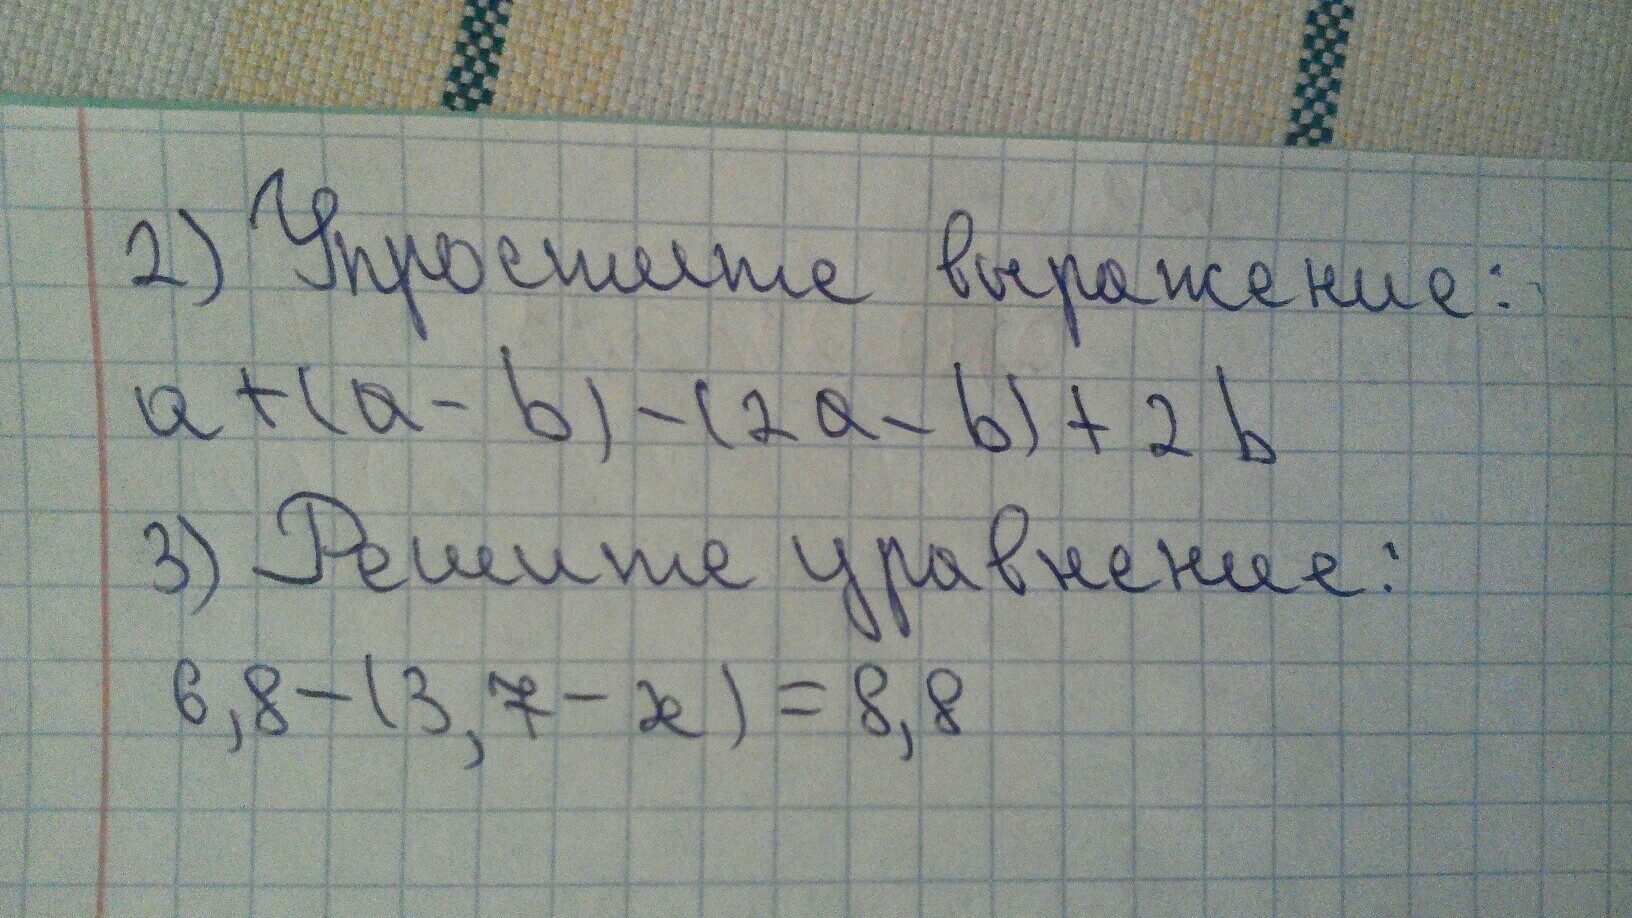 2) Упростите выражение:
a+(a-b)-(2a-b)+2b
3) Решите уравнение:
6,8-(3,7-x)=8,8